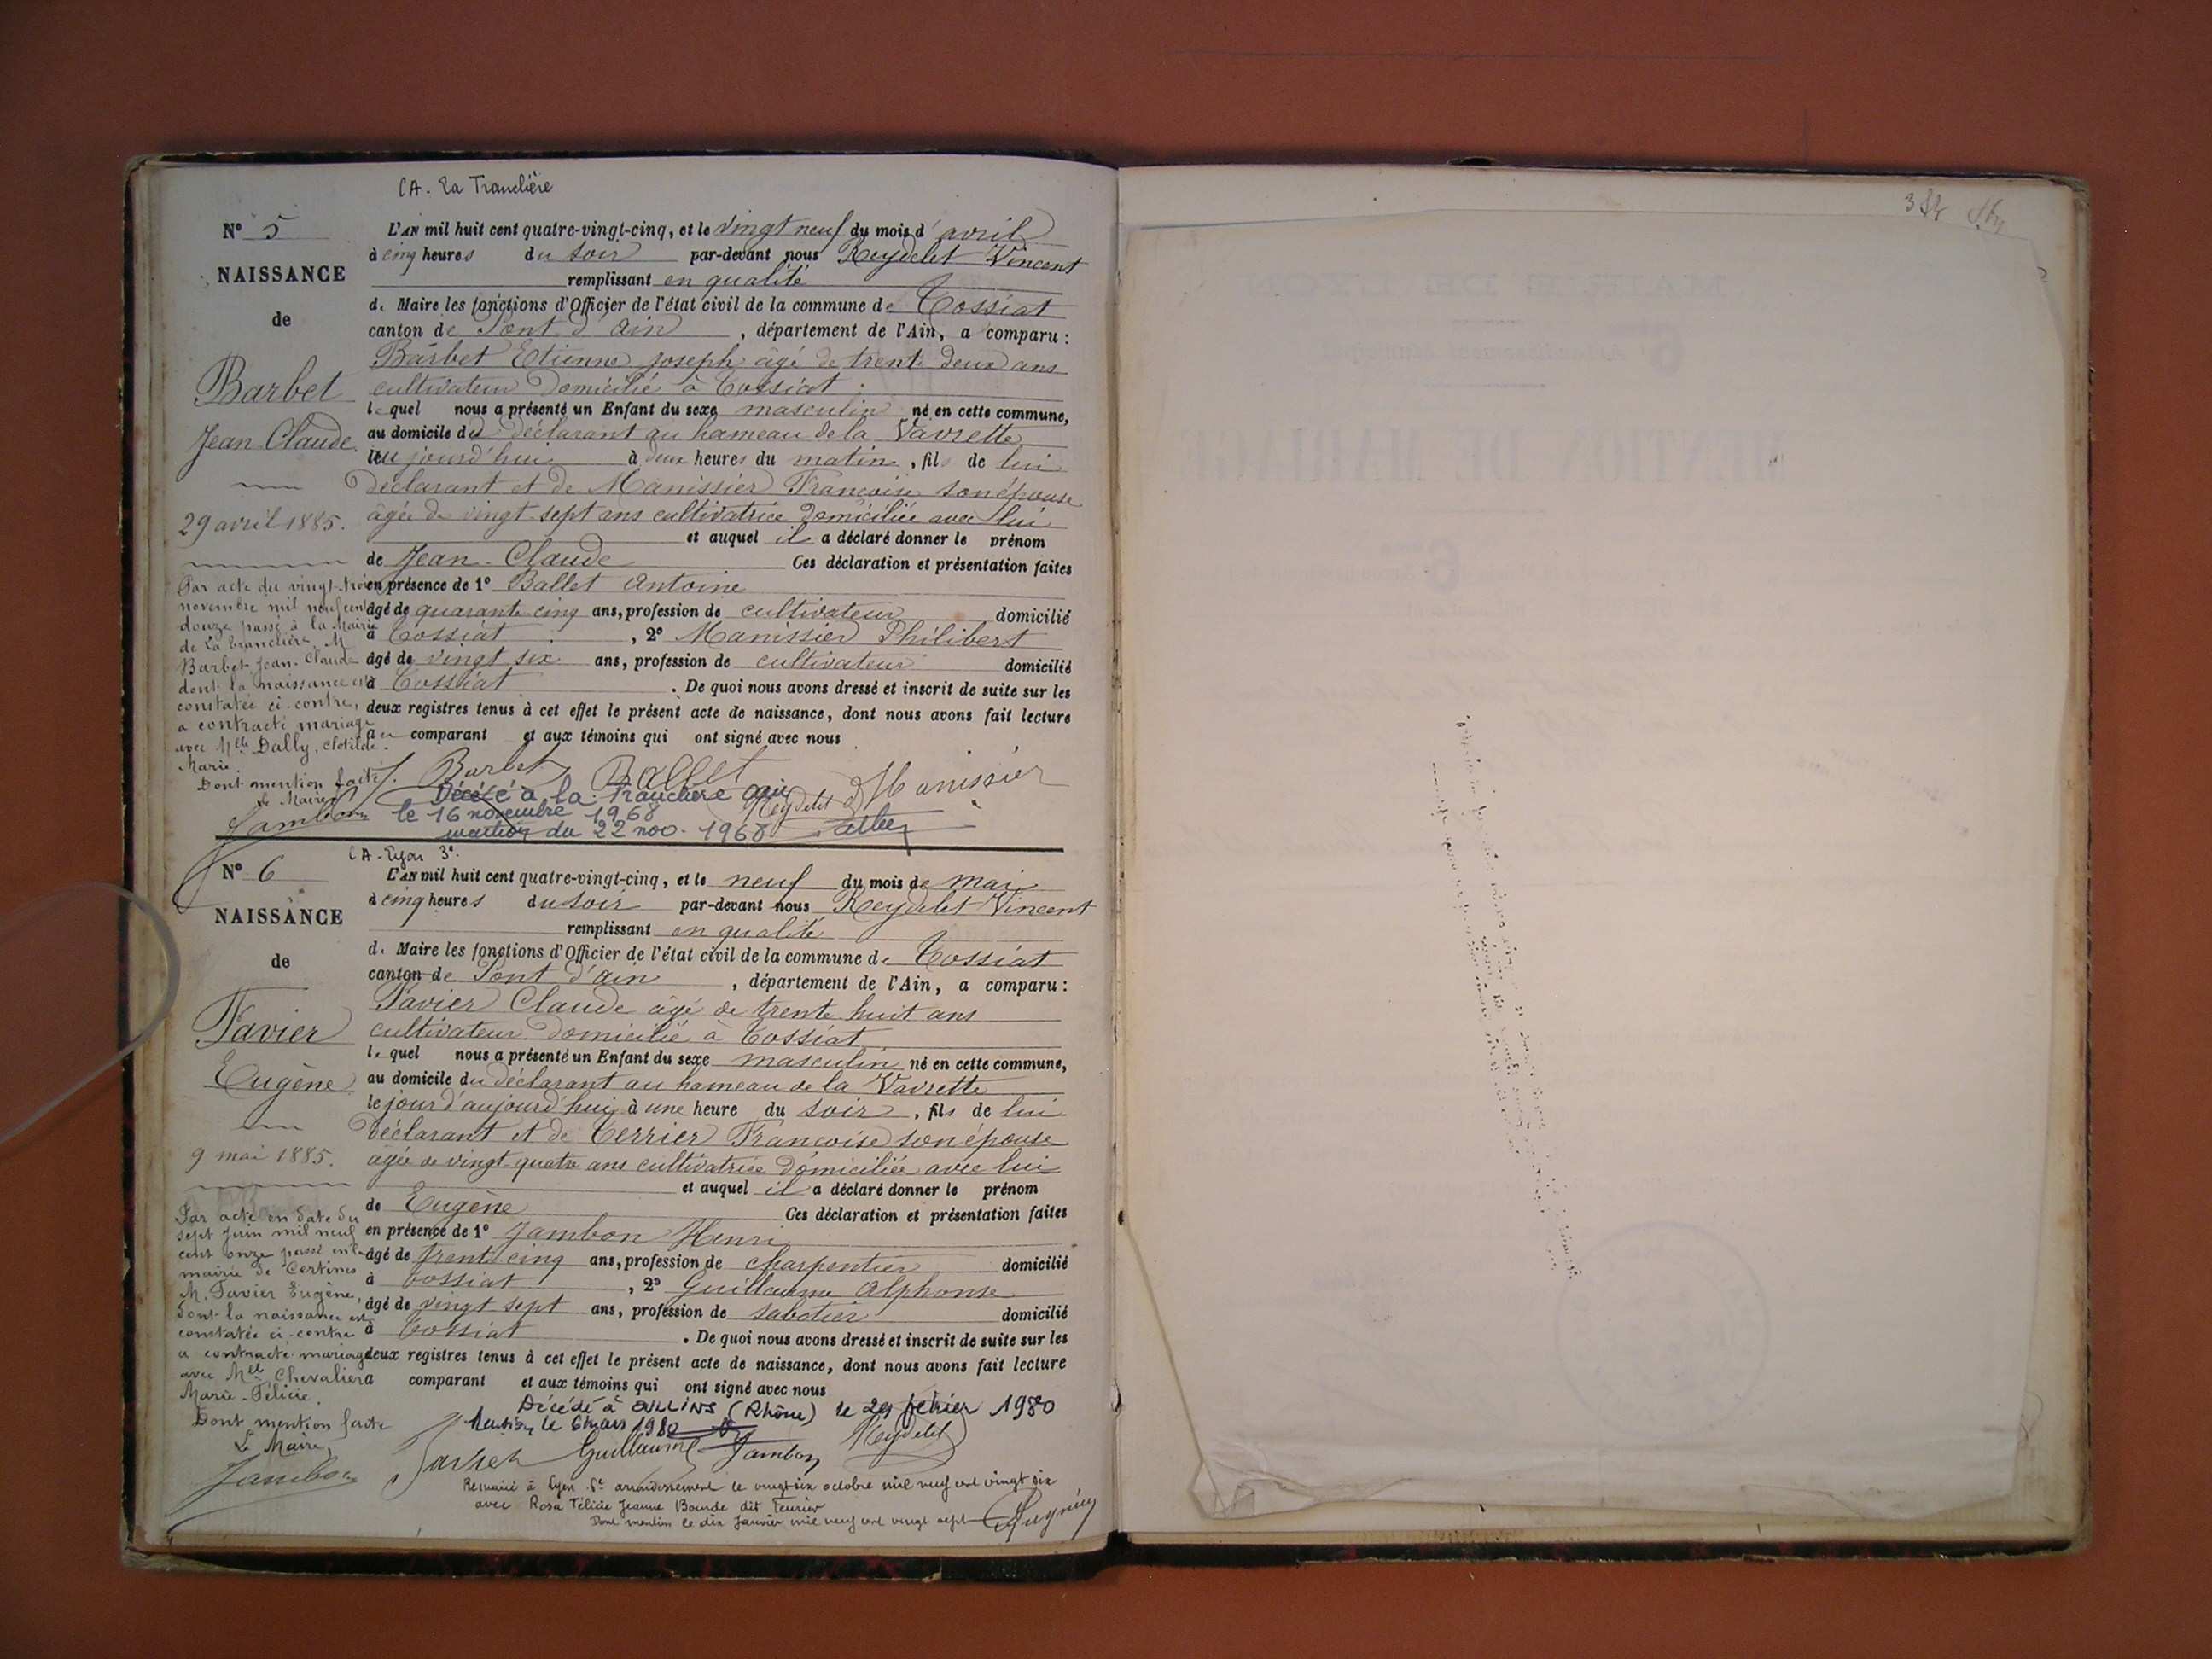 CA. La Tranclière
N° 5
NAISSANCE
de
Barbet
Jean Claude
29 avril 1885.
L'AN mil huit cent quatre-vingt-cinq, et le vingt neuf du mois d'avril
à cinq heures du soir par-devant nous Reydelet Vincent
remplissant en qualité
de Maire les fonctions d'Officier de l'état civil de la commune de Tossiat
canton de Pont d'ain, département de l'Ain, a comparu:
Barbet Etienne Joseph âgé de trente deux ans
cultivateur domicilié à Tossiat
lequel nous a présenté un Enfant du sexe masculin né en cette commune,
au domicile du déclarant au hameau de la Vavrette
aujourd'hui à deux heures du matin, fils de lui
déclarant et de Manissier Françoise son épouse
âgée de vingt sept ans cultivatrice domiciliée avec lui
et auquel il a déclaré donner le prénom
de Jean Claude Ces déclaration et présentation faites
en présence de 1° Ballet Antoine
âgé de quarante cinq ans, profession de cultivateur domicilié
à Tossiat, 2° Manissier Philibert
âgé de vingt six ans, profession de cultivateur domicilié
à Tossiat. De quoi nous avons dressé et inscrit de suite sur les
deux registres tenus à cet effet le présent acte de naissance, dont nous avons fait lecture
au comparant et aux témoins qui ont signé avec nous
Par acte du vingt-trois
novembre mil neuf cent
douze passé à la Mairie
de La Tranclière M
Barbet Jean-Claude
dont la naissance est
constatée ci-contre,
a contracté mariage
avec Mlle Dally, Clotilde
Marie.
Dont mention faite
Le Maire
Jambon
J. Barbet Ballet Manissier
Reydelet
Décédé à la Tranclière ain
le 16 novembre 1968
mention du 22 nov. 1968
CA - Lyon 3e
N° 6
NAISSANCE
de
Favier
Eugène
9 mai 1885.
L'AN mil huit cent quatre-vingt-cinq, et le neuf du mois de mai
à cinq heures du soir par-devant nous Reydelet Vincent
remplissant en qualité
de Maire les fonctions d'Officier de l'état civil de la commune de Tossiat
canton de Pont d'ain, département de l'Ain, a comparu:
Favier Claude âgé de trente huit ans
cultivateur domicilié à Tossiat
lequel nous a présenté un Enfant du sexe masculin né en cette commune,
au domicile du déclarant au hameau de la Vavrette
le jour d'aujourd'hui à une heure du soir, fils de lui
déclarant et de Terrier Françoise son épouse
âgée de vingt quatre ans cultivatrice domiciliée avec lui
et auquel il a déclaré donner le prénom
de Eugène Ces déclaration et présentation faites
en présence de 1° Jambon Henri
âgé de trente cinq ans, profession de charpentier domicilié
à Tossiat, 2° Guillaume Alphonse
âgé de vingt sept ans, profession de sabotier domicilié
à Tossiat. De quoi nous avons dressé et inscrit de suite sur les
deux registres tenus à cet effet le présent acte de naissance, dont nous avons fait lecture
a comparant et aux témoins qui ont signé avec nous
Par acte en date du
sept Juin mil neuf
cent onze passé en la
mairie de Certines
M. Favier Eugène,
dont la naissance est
constatée ci-contre
a contracté mariage
avec Mlle Chevalier
Marie-Félicie.
Dont mention faite
Le Maire,
Jambon
Décédé à OULLINS (Rhône) le février 1980
Mention le 6 mars 1980
Favier Guillaume Jambon Reydelet
Remarié à Lyon arrondissement le vingt six octobre mil neuf cent vingt six
avec Rosa Félicie Jeanne Bourde dit Feurier
Dont mention le dix Janvier mil neuf cent vingt sept
MAIRIE DE LYON